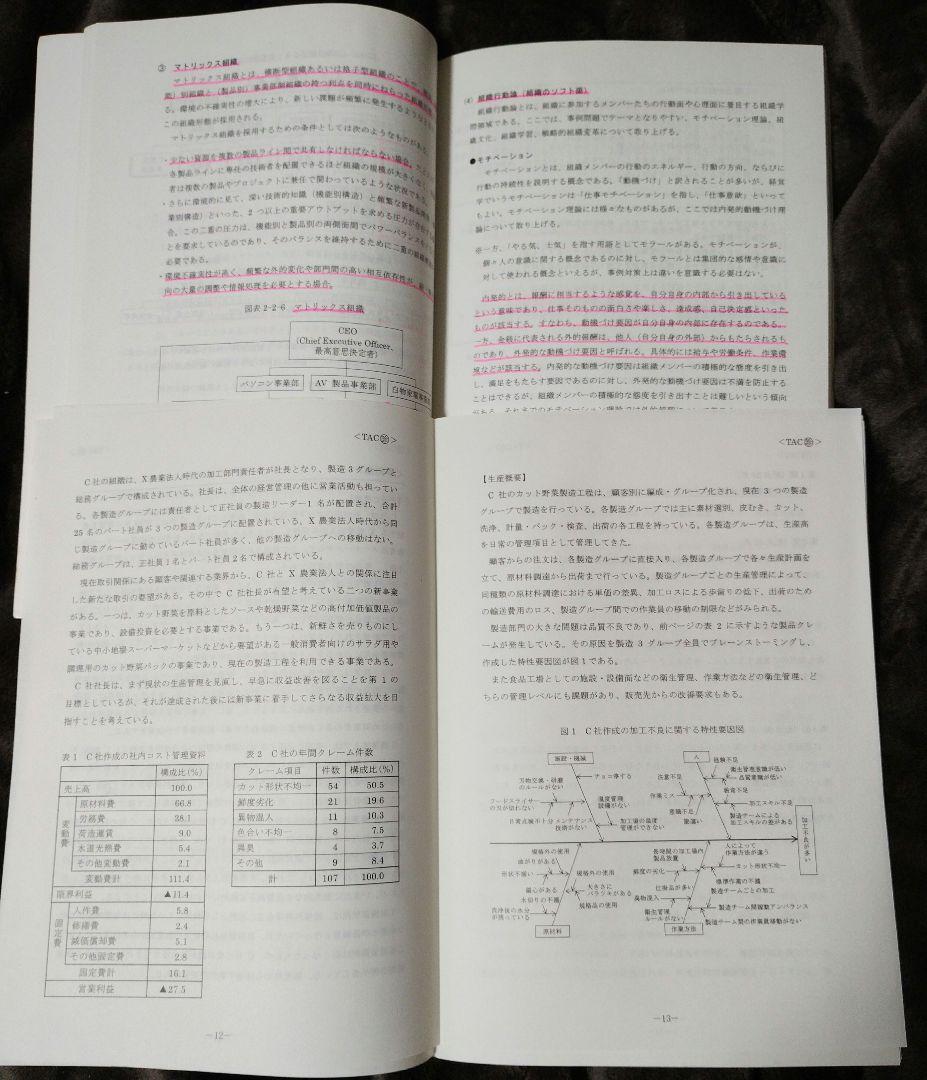 ③ マトリックス組織
マトリックス組織とは、横断型組織あるいは格子型組織のことで、
能）別組織と、（製品別）事業部制組織の持つ利点を同時にねらった組織
る。環境の不確実性の増大により、新しい課題が頻繁に発生するような
この組織形態が採用される。
マトリックス組織を採用するための条件としては次のようなものがある。
・少ない資源を複数の製品ライン間で共有しなければならない場合。
各製品ラインに専任の技術者を配置できるほど組織の規模が大きくなく、
者は複数の製品やプロジェクトに兼任で関わっているような状況である。
・さらに環境的に見て、深い技術的知識（機能別構造）と頻繁な新製品
業別構造）といった、2つ以上の重要アウトプットを求める圧力が存在
合。この二重の圧力は、機能別と製品別の両側面間でパワーバランスを
とを要求しているのであり、そのバランスを維持するために二重の
必要である。
・環境不確実性が高く、頻繁な外的変化や部門間の高い相互依存性が、
向の大量の調整や情報処理を必要とする場合。
図表 2-2-6 マトリックス組織
CEO
(Chief Executive Officer,
最高意思決定者)
パソコン事業部
AV 製品事業部
白物家電事業
(4) 組織行動論（組織のソフト面）
組織行動論とは、組織に参加するメンバーたちの行動面や心理面に着目する組織学
問領域である。ここでは、事例問題でテーマとなりやすい、モチベーション理論、組
織文化、組織学習、戦略的組織変革について取り上げる。
●モチベーション
モチベーションとは、組織メンバーの行動のエネルギー、行動の方向、ならびに
行動の持続性を説明する概念である。「動機づけ」と訳されることが多いが、経営
学でいうモチベーションは「仕事モチベーション」を指し、「仕事意欲」といって
もよい。モチベーション理論には様々なものがあるが、ここでは内発的動機づけ理
論について取り上げる。
※一方、「やる気、士気」を指す用語としてモラールがある。モチベーションが、
個々人の意識に関する概念であるのに対し、モラールとは集団的な感情や意識に
対して使われる概念といえるが、事例対策上は違いを意識する必要はない。
内発的とは、報酬に相当するような感覚を、自分自身の内部から引き出している
という意味であり、仕事そのものの面白さや楽しさ、達成感、自己決定感といった
ものが該当する。すなわち、動機づけ要因が自分自身の内部に存在するのである。
一方、金銭に代表される外的報酬は、他人（自分自身の外部）からもたらされるも
のであり、外発的な動機づけ要因と呼ばれる。具体的には給与や労働条件、作業環
境などが該当する。内発的な動機づけ要因は組織メンバーの積極的な態度を引き出
し、満足をもたらす要因であるのに対し、外発的な動機づけ要因は不満を防止する
ことはできるが、組織メンバーの積極的な態度を引き出すことは難しいという傾向
＜TAC㊱＞
C社の組織は、X農業法人時代の加工部門責任者が社長となり、製造3グループと
総務グループで構成されている。社長は、全体の経営管理の他に営業活動も担ってい
る。各製造グループには責任者として正社員の製造リーダー1名が配置され、合計
25名のパート社員が3つの製造グループに配置されている。X農業法人時代から同
じ製造グループに勤めているパート社員が多く、他の製造グループへの移動はない。
総務グループは、正社員1名とパート社員2名で構成されている。
現在取引関係にある顧客や関連する業界から、C社とX農業法人との関係に注目
した新たな取引の要望がある。その中でC社社長が有望と考えている二つの新事業
がある。一つは、カット野菜を原料としたソースや乾燥野菜などの高付加価値製品の
事業であり、設備投資を必要とする事業である。もう一つは、新鮮さを売りものにし
ている中小地場スーパーマーケットなどから要望がある一般消費者向けのサラダ用や
調理用のカット野菜パックの事業であり、現在の製造工程を利用できる事業である。
C社社長は、まず現状の生産管理を見直し、早急に収益改善を図ることを第1の
目標としているが、それが達成された後には新事業に着手してさらなる収益拡大を目
指すことを考えている。
表1 C社作成の社内コスト管理資料
構成比(%)
売上高 100.0
変動費
原材料費 66.8
労務費 28.1
荷造運賃 9.0
水道光熱費 5.4
その他変動費 2.1
変動費計 111.4
限界利益 ▲11.4
固定費
人件費 5.8
修繕費 2.4
減価償却費 5.1
その他固定費 2.8
固定費計 16.1
営業利益 ▲27.5
表2 C社の年間クレーム件数
クレーム項目 件数 構成比(%)
カット形状不均一 54 50.5
鮮度劣化 21 19.6
異物混入 11 10.3
色合い不均一 8 7.5
異臭 4 3.7
その他 9 8.4
計 107 100.0
－12－
＜TAC㊱＞
【生産概要】
C社のカット野菜製造工程は、顧客別に編成・グループ化され、現在3つの製造
グループで製造を行っている。各製造グループでは主に素材選別、皮むき、カット、
洗浄、計量・パック・検査、出荷の各工程を持っている。各製造グループは、生産高
を日常の管理項目として管理してきた。
顧客からの注文は、各製造グループに直接入り、各製造グループで各々生産計画を
立て、原材料調達から出荷まで行っている。製造グループごとの生産管理によって、
同種類の原材料調達における単価の差異、加工ロスによる歩留りの低下、出荷のため
の輸送費用のロス、製造グループ間での作業員の移動の制限などがみられる。
製造部門の大きな問題は品質不良であり、前ページの表2に示すような製品クレ
ームが発生している。その原因を製造3グループ全員でブレーンストーミングし、
作成した特性要因図が図1である。
また食品工場としての施設・設備面などの衛生管理、作業方法などの衛生管理、ど
ちらの管理レベルにも課題があり、販売先からの改善要求もある。
図1 C社作成の加工不良に関する特性要因図
施設・機械
人
チョコ停する
刃物交換・研磨
のルールがない
フードスライサー
の刃が切れない
日常点検不十分
メンテナンス
技術がない
温度管理
設備がない
加工場の温度
管理ができない
経験不足
注意不足
衛生管理意識が低い
品質意識が低い
教育不足
作業ミス
加工スキル不足
意識不足
勘違い
製造チームによる
加工スキルの差がある
加工不良が多い
規格外の使用
曲がりがある
形状不揃い
規格外の使用
傷心がある
大きさに
バラツキがある
水切りの不備
規格品の使用
洗浄後の水分
が残っている
原材料
長時間の加工場内
製品放置
人によって
作業方法が違う
鮮度の劣化
カット形状不均一
標準作業の不備
仕掛品が多い
製造チームごとの加工
異物混入
製造チーム間稼働アンバランス
衛生管理
ルールがない
製造チーム間の作業員移動がない
作業方法
－13－